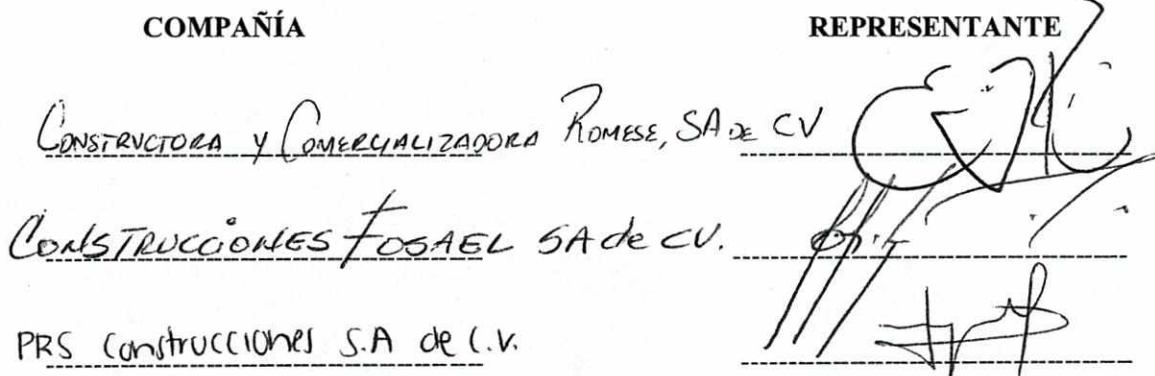 COMPAÑÍA REPRESENTANTE
CONSTRUCTORA Y COMERCIALIZADORA ROMESE, SA DE CV
CONSTRUCCIONES FOSAEL SA de CV.
PRS Construcciones S.A de C.V.